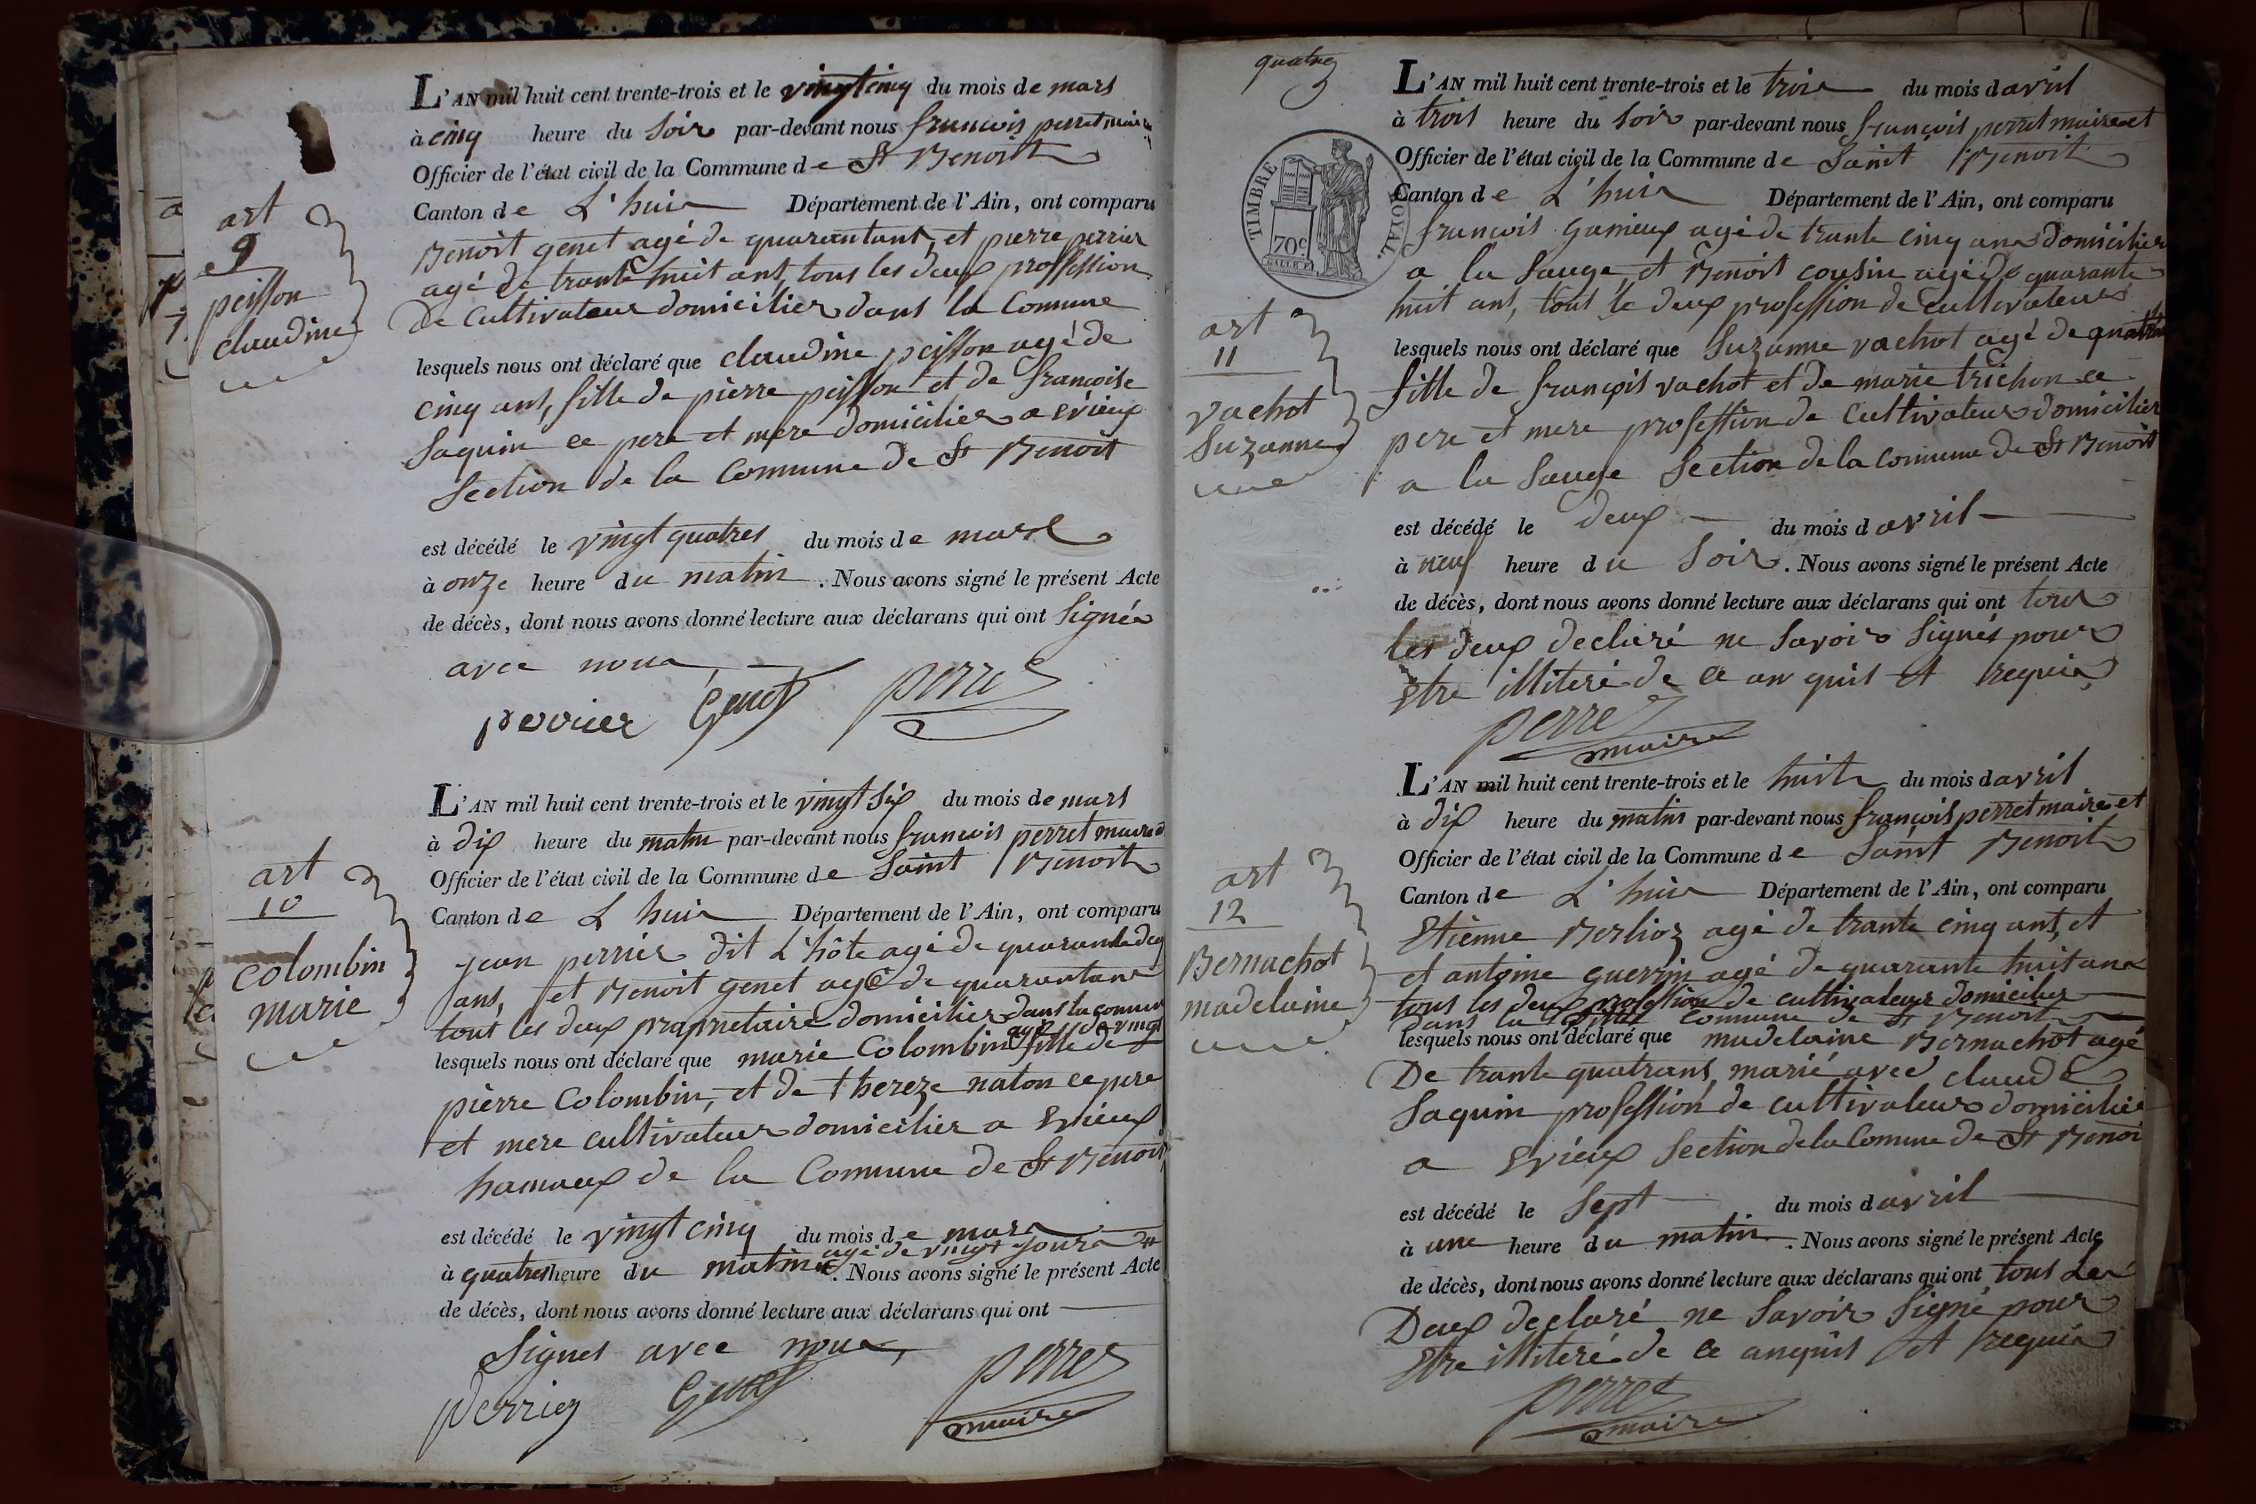 L'AN mil huit cent trente-trois et le vingt cinq du mois de mars
à cinq heure du soir par-devant nous francois perret maire
Officier de l'état civil de la Commune de St Benoit
Canton de L'huis Département de l'Ain, ont comparu
Benoit genet agé de quarantant, et pierre perrier
agé de trante huit ans, tous les deux proffession
De Cultivateur domicilier dans la Comune
lesquels nous ont déclaré que claudine peisson agé de
cinq ans, fille de pierre peisson et de francoise
Saquin ce pere et mere domicilier a Evieux
Section de la Commune de St Benoit
est décédé le vingt quatres du mois de mars
à onze heure du matin. Nous avons signé le présent Acte
de décès, dont nous avons donné lecture aux déclarans qui ont Signés
avec nous
perrier Genet perret
art
9
peisson
claudine
L'AN mil huit cent trente-trois et le vingt Six du mois de mars
à dix heure du matin par-devant nous francois perret maire et
Officier de l'état civil de la Commune de Saint Benoit
Canton de L'huis Département de l'Ain, ont comparu
jean perrier dit L'hôte agé de quarante deux
ans, et Benoit genet agé de quarantans
tout les deux proprietaire domicilier dans la comune
lesquels nous ont déclaré que marie Colombin fille de
pierre Colombin, et de thereze naton ce pere
et mere cultivateur domicilier a Evieux
hamaux de la Commune de St Benoit
est décédé le vingt cinq du mois de mars
agé de vingt jours
à quatres heure du matin. Nous avons signé le présent Acte
de décès, dont nous avons donné lecture aux déclarans qui ont
Signes avec nous,
Perrier Genet perret
maire
art
10
colombin
marie
quatre
TIMBRE ROYAL
70c
L'AN mil huit cent trente-trois et le trois du mois d avril
à trois heure du soir par-devant nous françois perret maire et
Officier de l'état civil de la Commune de Saint Benoit
Canton de L'huis Département de l'Ain, ont comparu
francois Gamieux agé de trante cinq ans domicilier
a la Sauge, et Benoit cousin agé de quarante
huit ans, tout le deux profession de cultivateur
lesquels nous ont déclaré que Suzanne vachot agé de
fille de françois vachot et de marie trichon ce
pere et mere profession de Cultivateur domicilier
a la Sauge Section de la comune de St Benoit
est décédé le deux du mois d avril
à neuf heure du Soir. Nous avons signé le présent Acte
de décès, dont nous avons donné lecture aux déclarans qui ont tous
les deux declaré ne Savoir Signés pour
Etre illiteré de ce anquis et requis
perret
maire
art
11
vachot
Suzanne
L'AN mil huit cent trente-trois et le huit du mois d avril
à dix heure du matin par-devant nous françois perret maire et
Officier de l'état civil de la Commune de Saint Benoit
Canton de L'huis Département de l'Ain, ont comparu
Etienne Berlioz agé de trante cinq ant, et
et antoine guerrin agé de quarante huit ans
tous les deux profession de cultivateur domicilier
dans la commune de St Benoit
lesquels nous ont déclaré que madelaine Bernachot agé
De trante quatrans, marié avec claude
Saquin profession de cultivateur domicilié
a Evieux Section de la Comune de St Benoi
est décédé le Sept du mois d avril
à une heure du matin. Nous avons signé le présent Acte
de décès, dont nous avons donné lecture aux déclarans qui ont tous les
Deux declaré ne Savoir Signé pour
Etre illiteré de ce anquis et requis
perret
maire
art
12
Bernachot
madelaine